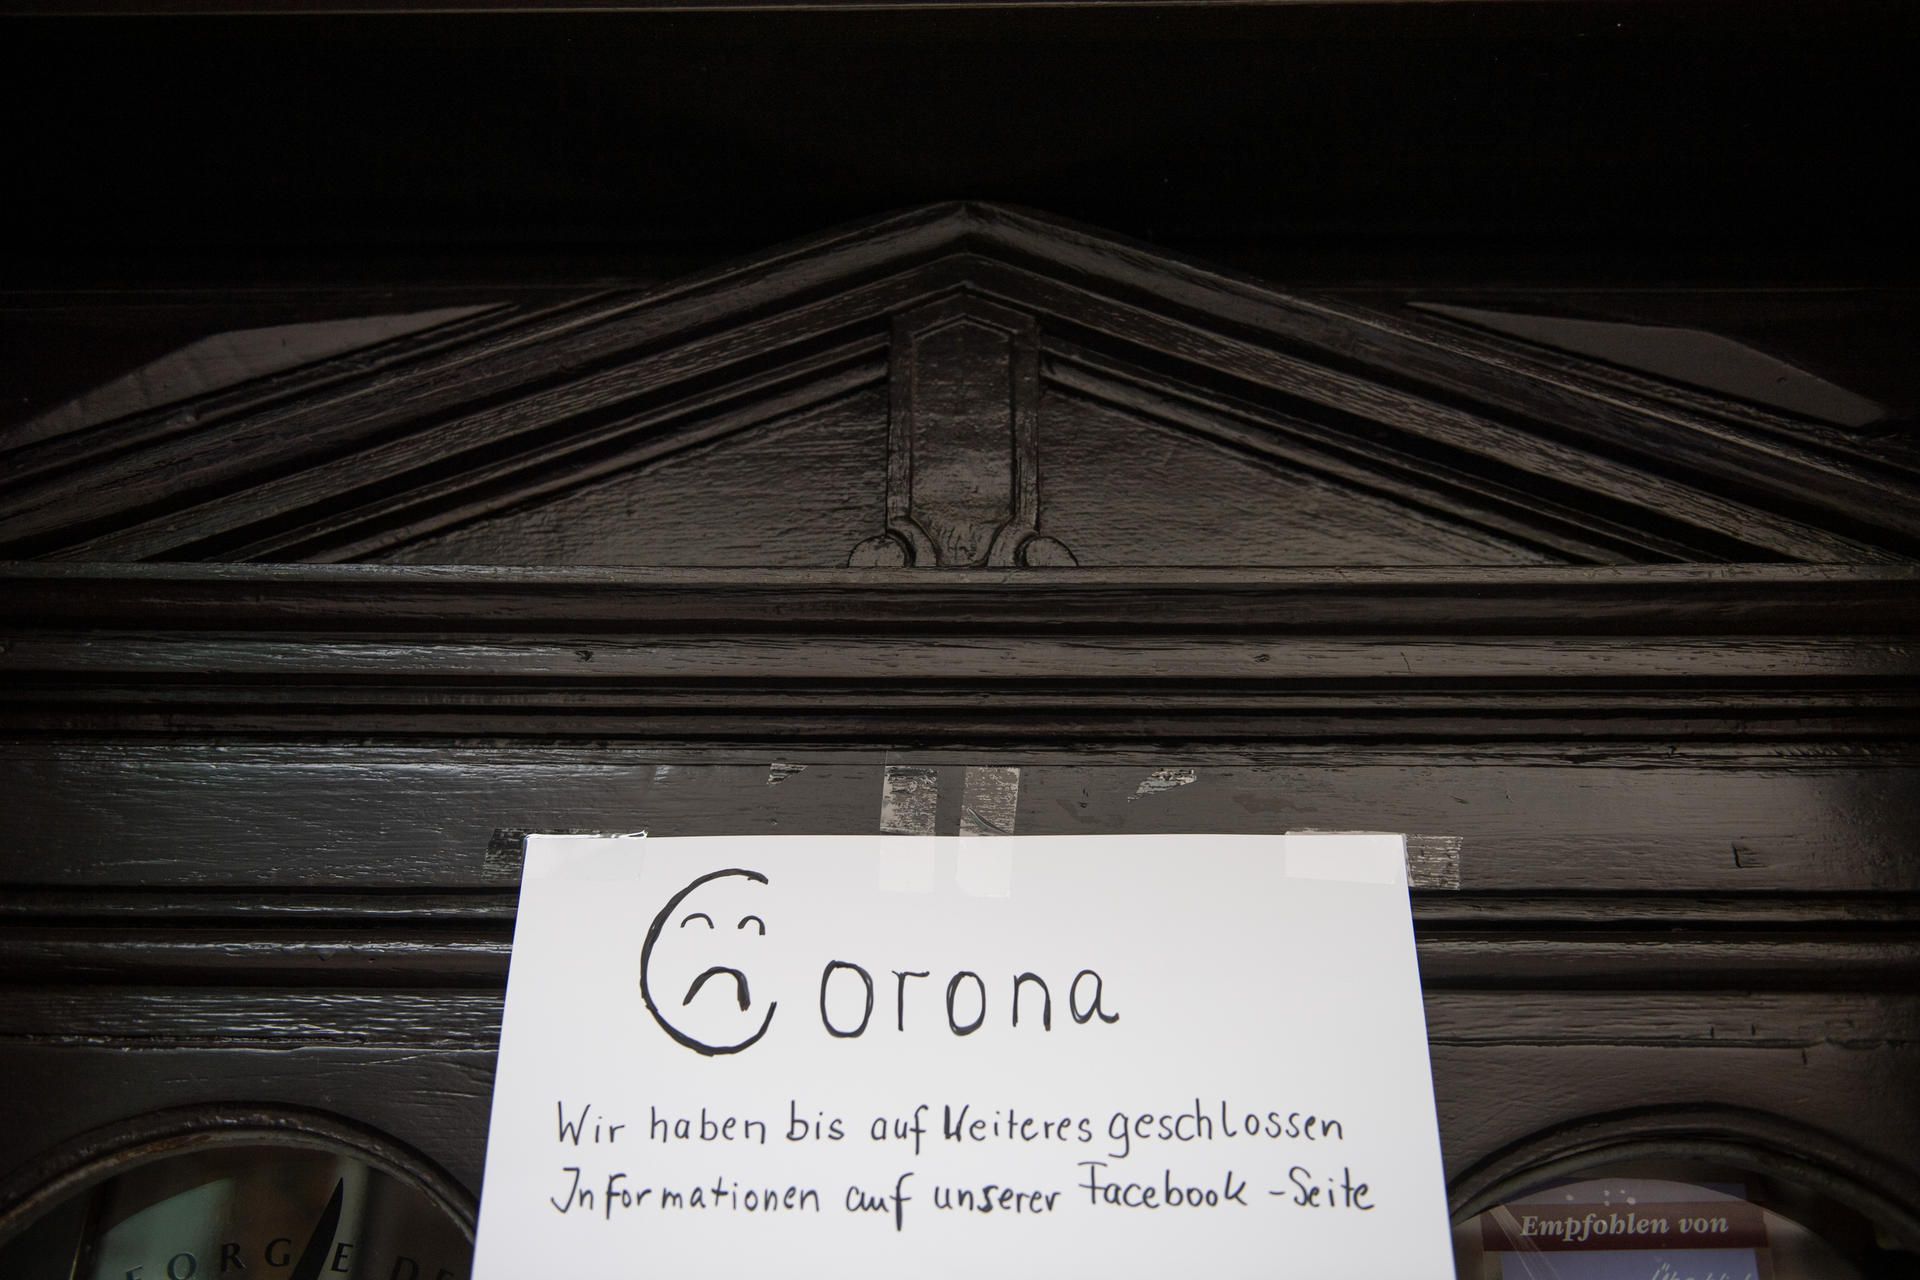 Corona
Wir haben bis auf Weiteres geschlossen
Informationen auf unserer Facebook-Seite
Empfohlen von